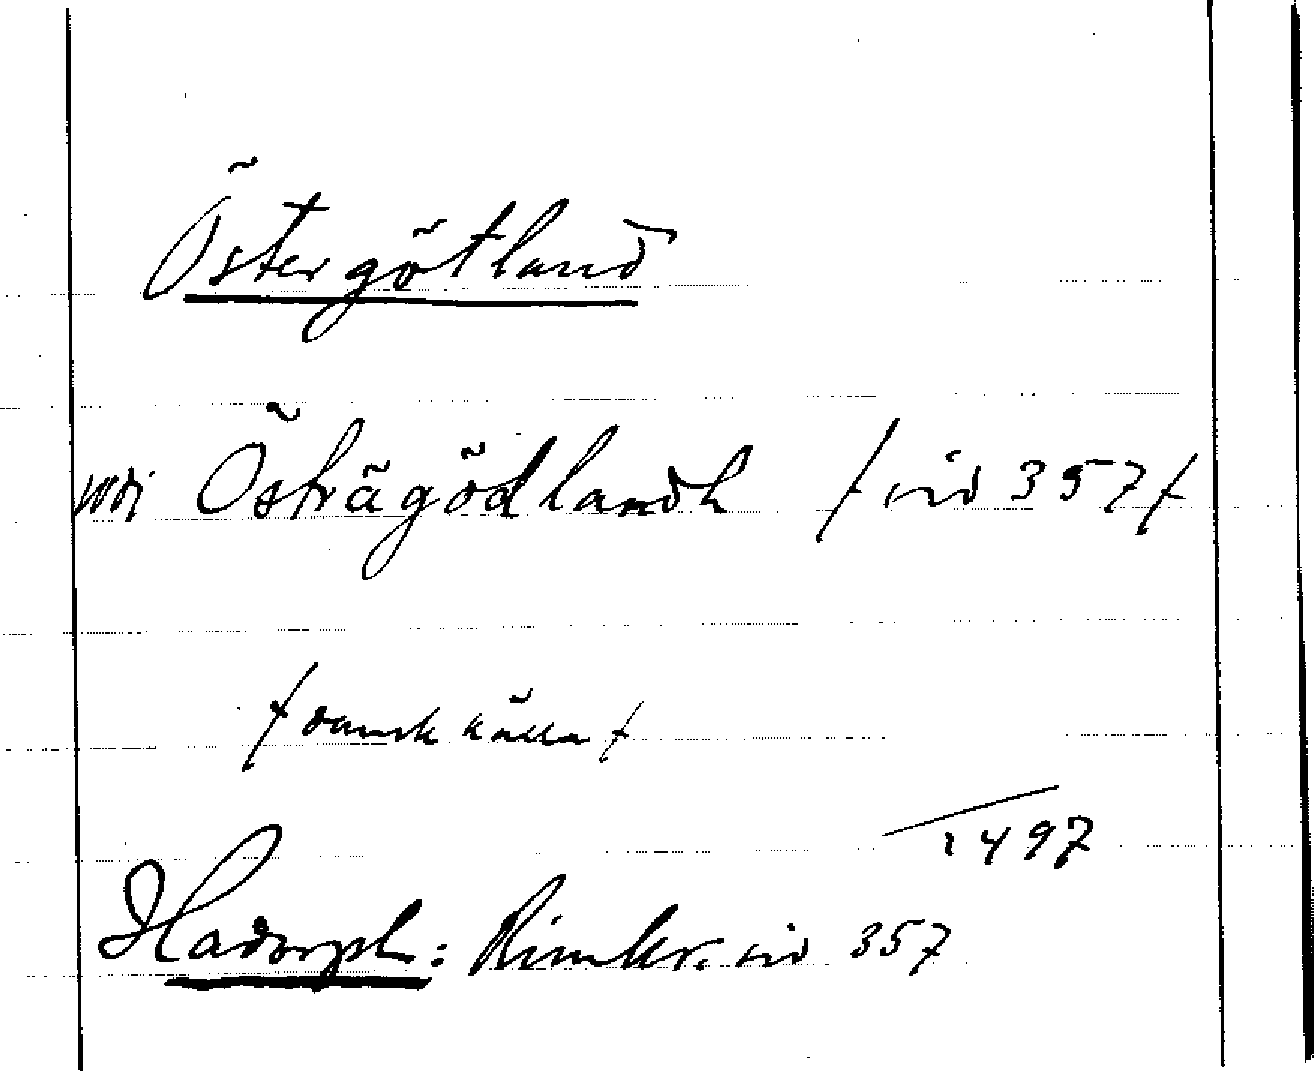 Östergötland
wdi Östrägödlandh / sid 357 /
/ dansk källa /
1497
Hadorph: Rimkr. sid 357